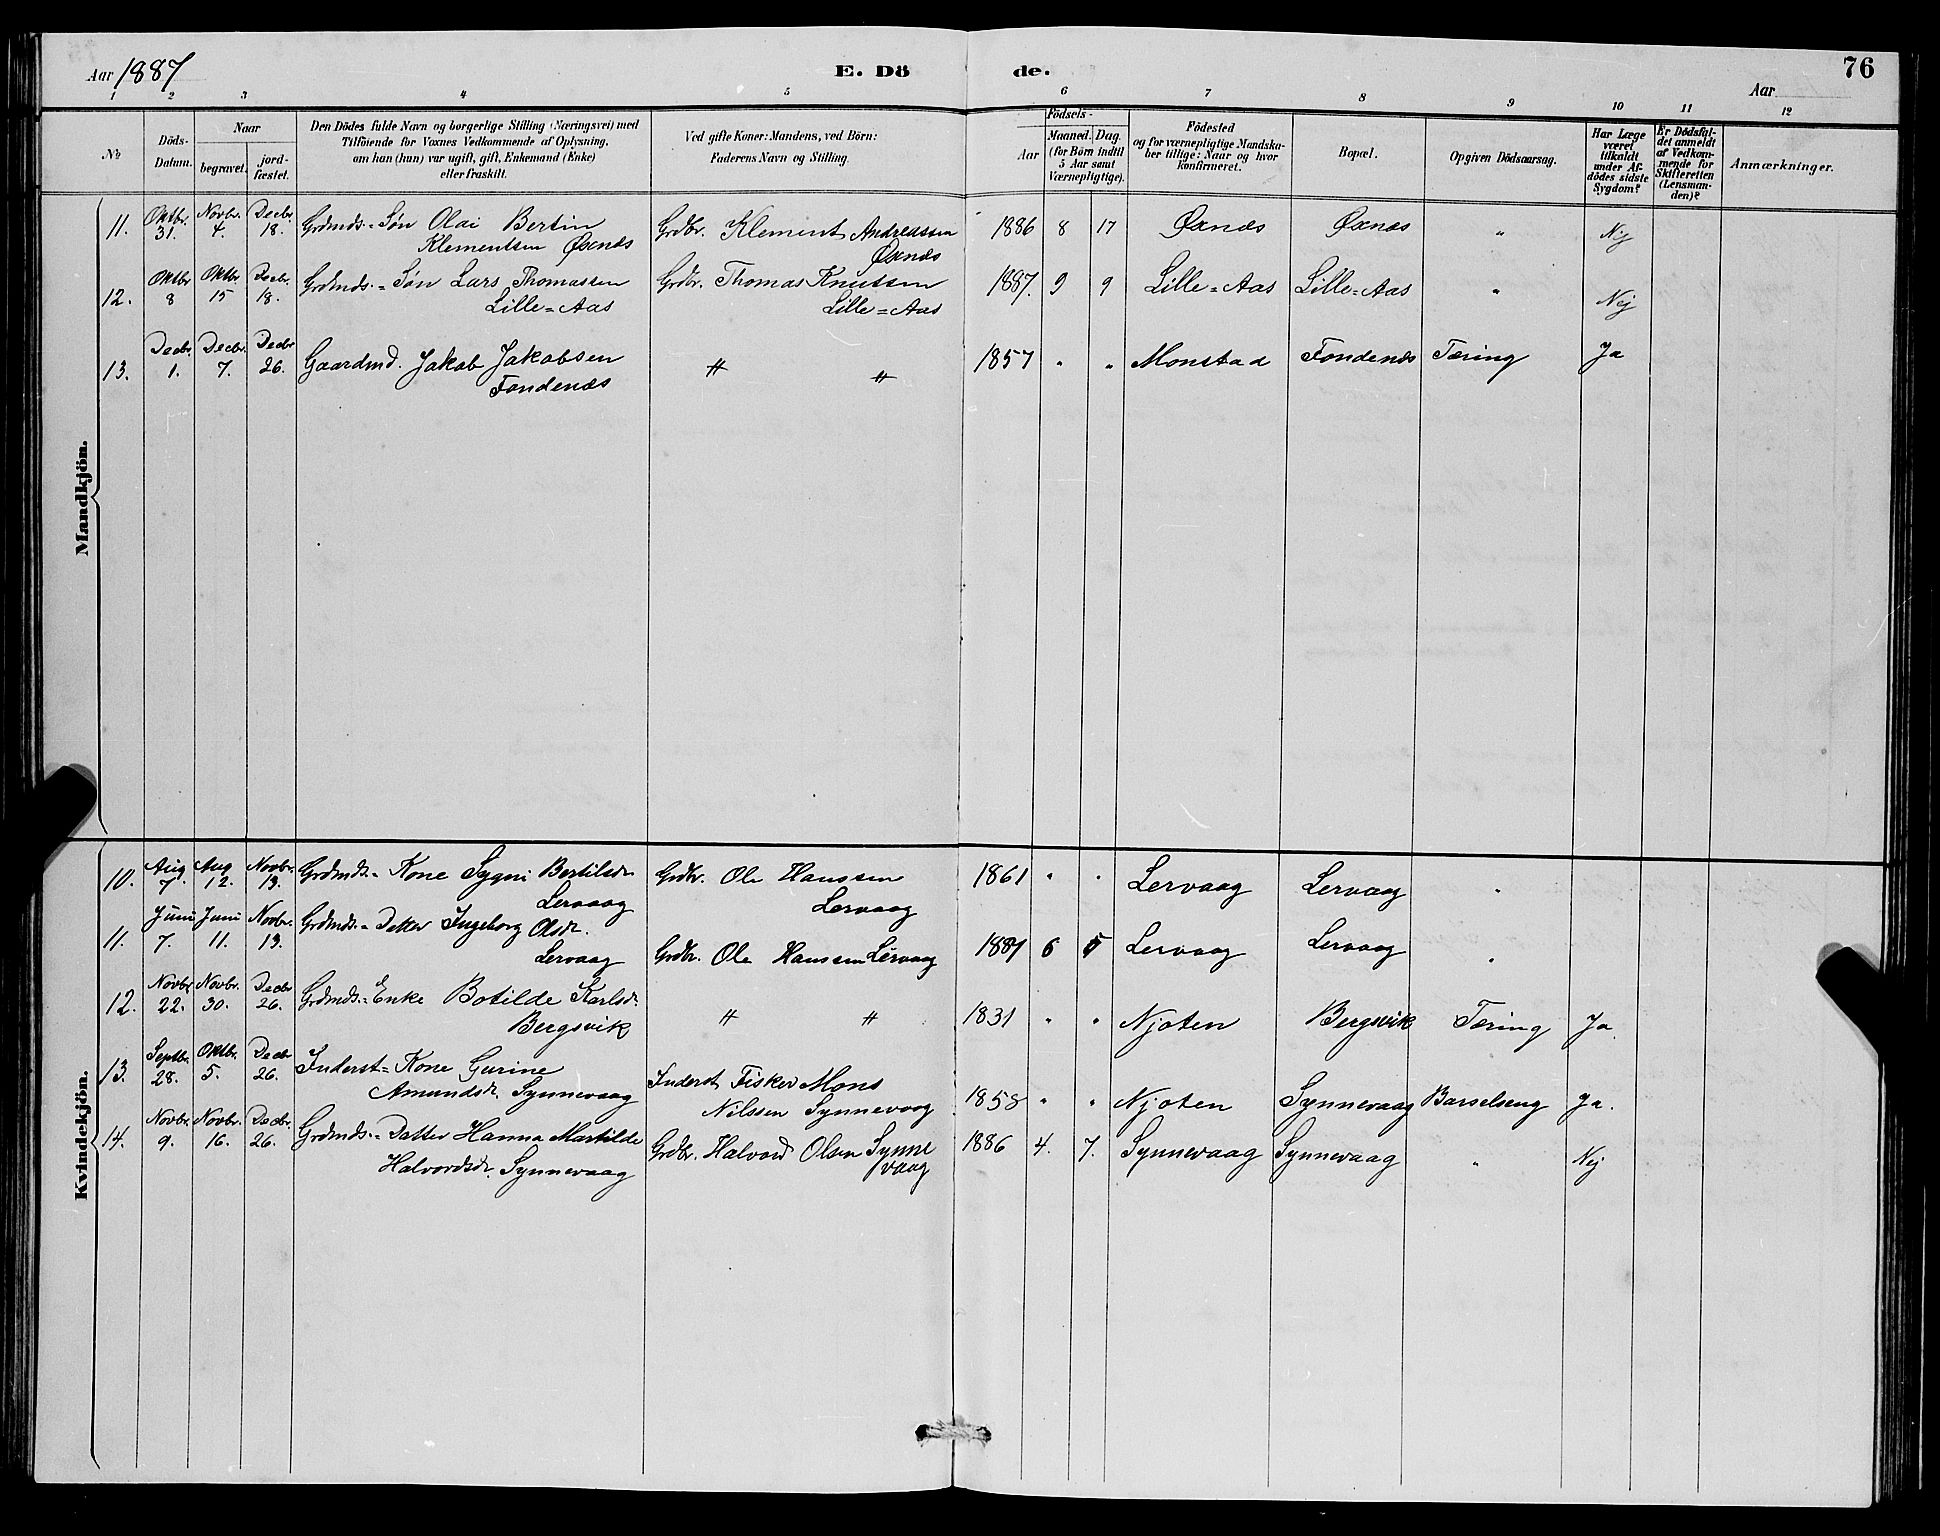 Aar 1887
E. Dö de.
76
Aar
1 2 3 4 5 6 7 8 9 10 11 12
No
Döds-Datum.
Naar
begravet.
jordfæstet.
Den Dödes fulde Navn og borgerlige Stilling (Næringsvei) med
Tilföiende for Voxnes Vedkommende af Oplysning,
om han (hun) var ugift, gift, Enkemand (Enke)
eller fraskilt.
Ved gifte Koner: Mandens, ved Börn:
Faderens Navn og Stilling.
Födsels-
Aar
Maaned.
Dag.
(for Börn indtil
5 Aar samt
Værnepligtige).
Födested
og for værnepligtige Mandska-
ber tillige: Naar og hvor
konfirmeret.
Bopæl.
Opgiven Dödsaarsag.
Har Læge
været
tilkaldt
under Af-
dödes sidste
Sygdom?
Er Dödsfal-
det anmeldt
af Vedkom-
mende for
Skifteretten
(Lensman-
den)?
Anmærkninger.
Mandkjön.
11. Oktbr. 31. Novbr. 4. Decbr. 18. Grdmds.=Søn Olai Bertin Grdbr. Klement Andreassen 1886 8 17 Øxnæs Øxnæs " Nej
Klementsen Øxnæs Øxnæs
12. Oktbr 8 Oktbr. 15 Decbr. 18. Grdmds.=Søn Lars Thomassen Grdbr. Thomas Knutsen 1887. 9 9 Lille=Aas Lille=Aas " Nej
Lille=Aas Lille=Aas
13. Decbr. 1. Decbr. 7. Decbr 26. Gaardmd. Jakob Jakobsen " " 1857 " " Monstad Fondenæs Tæring Ja
Fondenæs
Kvindekjön.
10. Aug. 7. Aug 12. Novbr. 13. Grdmds.=Kone Sygni Bertilsdr. Grdbr. Ole Hanssen 1861 " " Lervaag Lervaag "
Lervaag Lervaag
11. Juni 7. Juni 11. Novbr. 13. Grdmds.=Datter Ingeborg Olsdr. Grdbr. Ole Hanssen Lervaag 1887 6 5 Lervaag Lervaag "
Lervaag
12. Novbr 22. Novbr. 30. Decbr 26. Grdmds.=Enke Botilde Karlsdr. " " 1831 " " Njøten Bergsvik Tæring Ja.
Bergsvik
13. Septbr. 28. Oktbr. 5. Decbr 26. Inderst=Kone Gurine Inderst Fisker Mons 1858 " " Njøten Synnevaag Barselseng Ja.
Amundsdr. Synnevaag Nilssen Synnevaag
14. Novbr. 9. Novbr. 16. Decbr. 26. Grdmds.=Datter Hanna Martilde Grdbr. Halvord Olsen Synne 1886 4. 7. Synnevaag Synnevaag " Nej
Halvordsdr. Synnevaag vaag